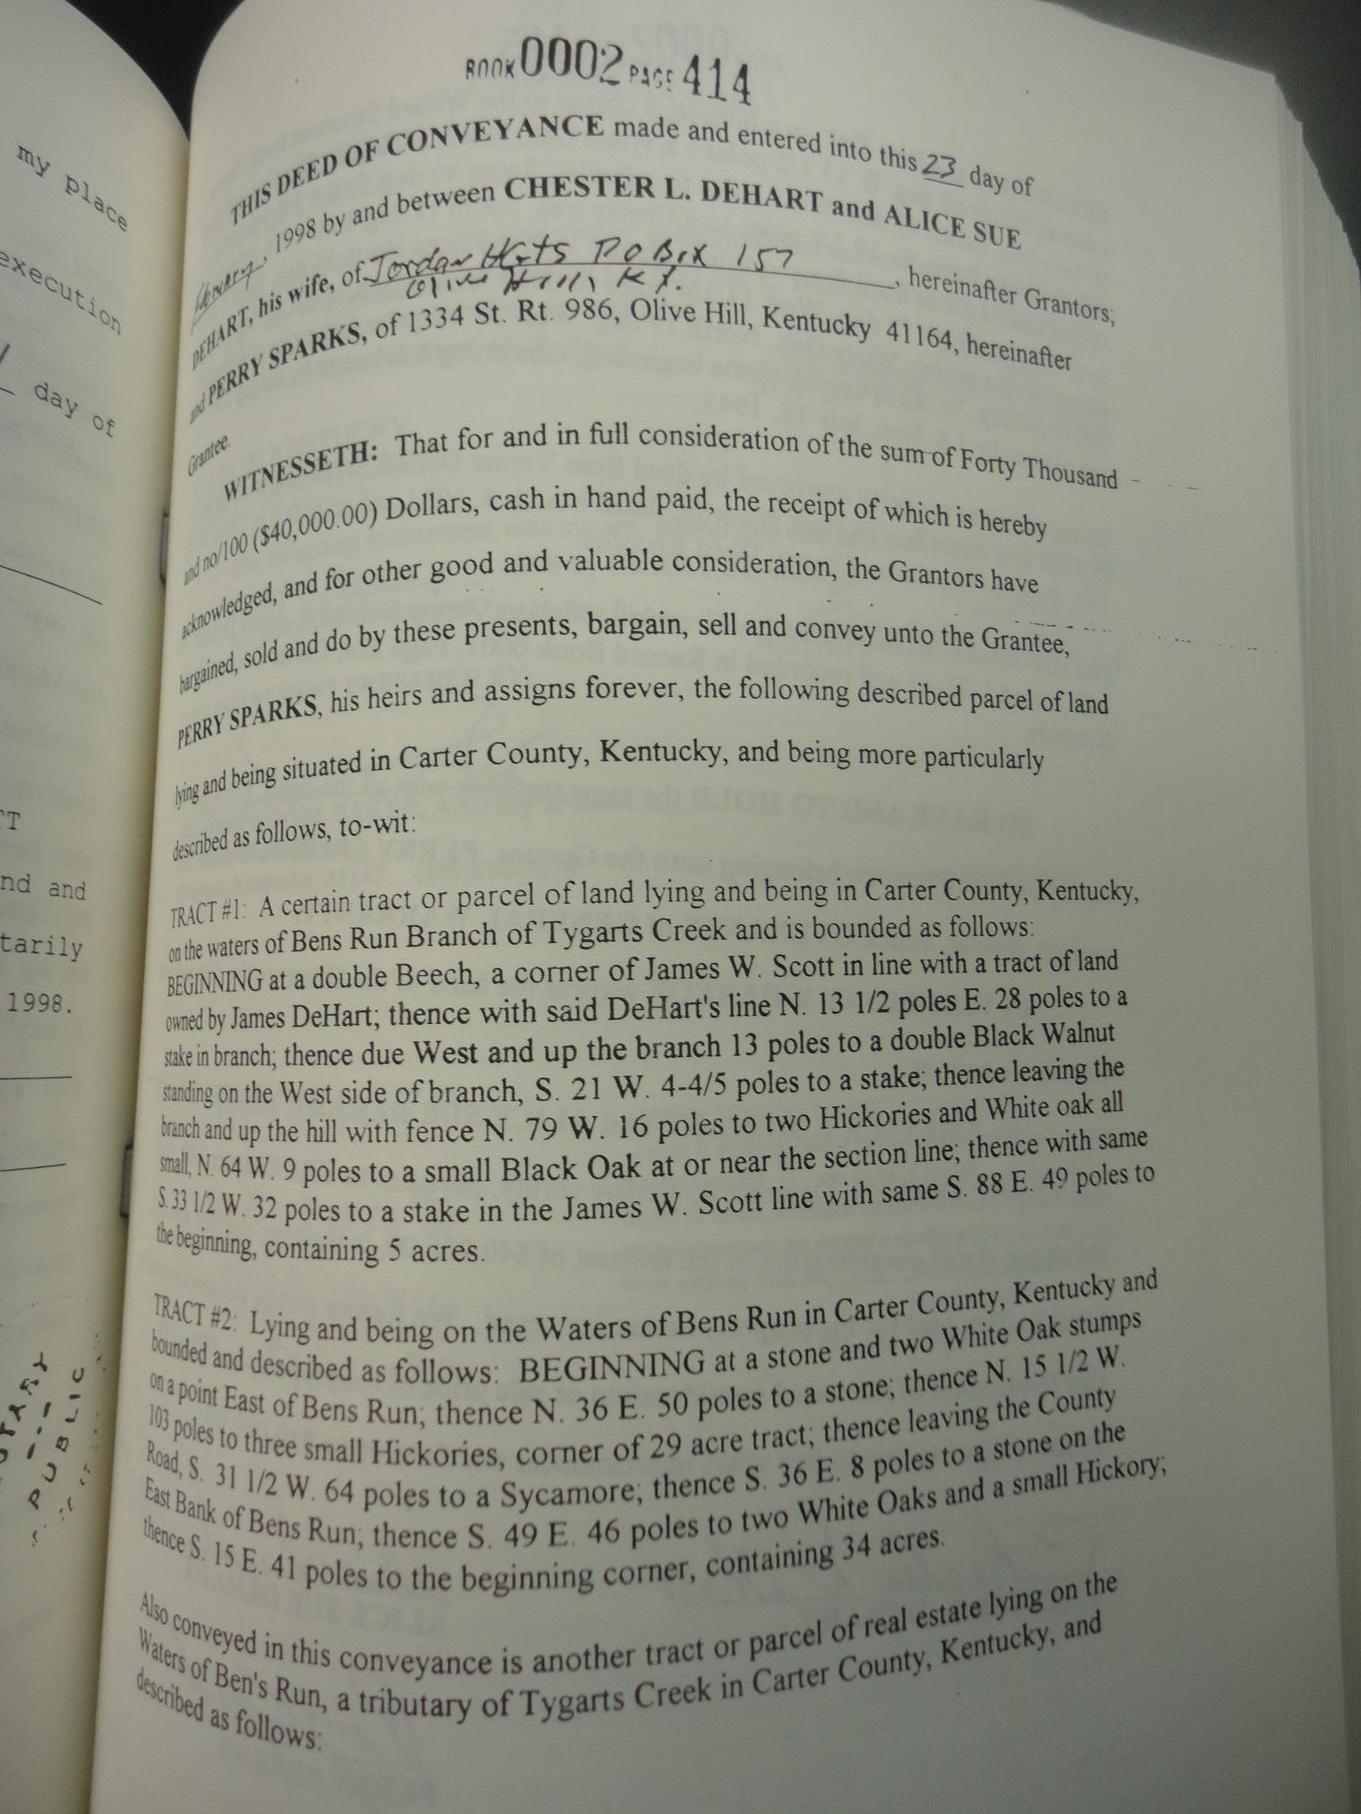 my place
execution
day of
nd and
tarily
1998.
PUBLIC
BOOK 0002 PAGE 414
THIS DEED OF CONVEYANCE made and entered into this 23 day of
1998 by and between CHESTER L. DEHART and ALICE SUE
DEHART, his wife, of Jordan Hgts P O Box 157, hereinafter Grantors;
Olive Hill, KY.
and PERRY SPARKS, of 1334 St. Rt. 986, Olive Hill, Kentucky 41164, hereinafter
Grantee.
WITNESSETH: That for and in full consideration of the sum of Forty Thousand
and no/100 ($40,000.00) Dollars, cash in hand paid, the receipt of which is hereby
acknowledged, and for other good and valuable consideration, the Grantors have
bargained, sold and do by these presents, bargain, sell and convey unto the Grantee,
PERRY SPARKS, his heirs and assigns forever, the following described parcel of land
lying and being situated in Carter County, Kentucky, and being more particularly
described as follows, to-wit:
TRACT #1: A certain tract or parcel of land lying and being in Carter County, Kentucky,
on the waters of Bens Run Branch of Tygarts Creek and is bounded as follows:
BEGINNING at a double Beech, a corner of James W. Scott in line with a tract of land
owned by James DeHart; thence with said DeHart's line N. 13 1/2 poles E. 28 poles to a
stake in branch; thence due West and up the branch 13 poles to a double Black Walnut
standing on the West side of branch, S. 21 W. 4-4/5 poles to a stake; thence leaving the
branch and up the hill with fence N. 79 W. 16 poles to two Hickories and White oak all
small, N. 64 W. 9 poles to a small Black Oak at or near the section line; thence with same
S. 33 1/2 W. 32 poles to a stake in the James W. Scott line with same S. 88 E. 49 poles to
the beginning, containing 5 acres.
TRACT #2: Lying and being on the Waters of Bens Run in Carter County, Kentucky and
bounded and described as follows: BEGINNING at a stone and two White Oak stumps
on a point East of Bens Run; thence N. 36 E. 50 poles to a stone; thence N. 15 1/2 W.
103 poles to three small Hickories, corner of 29 acre tract; thence leaving the County
Road, S. 31 1/2 W. 64 poles to a Sycamore; thence S. 36 E. 8 poles to a stone on the
East Bank of Bens Run; thence S. 49 E. 46 poles to two White Oaks and a small Hickory;
thence S. 15 E. 41 poles to the beginning corner, containing 34 acres.
Also conveyed in this conveyance is another tract or parcel of real estate lying on the
Waters of Ben's Run, a tributary of Tygarts Creek in Carter County, Kentucky, and
described as follows: